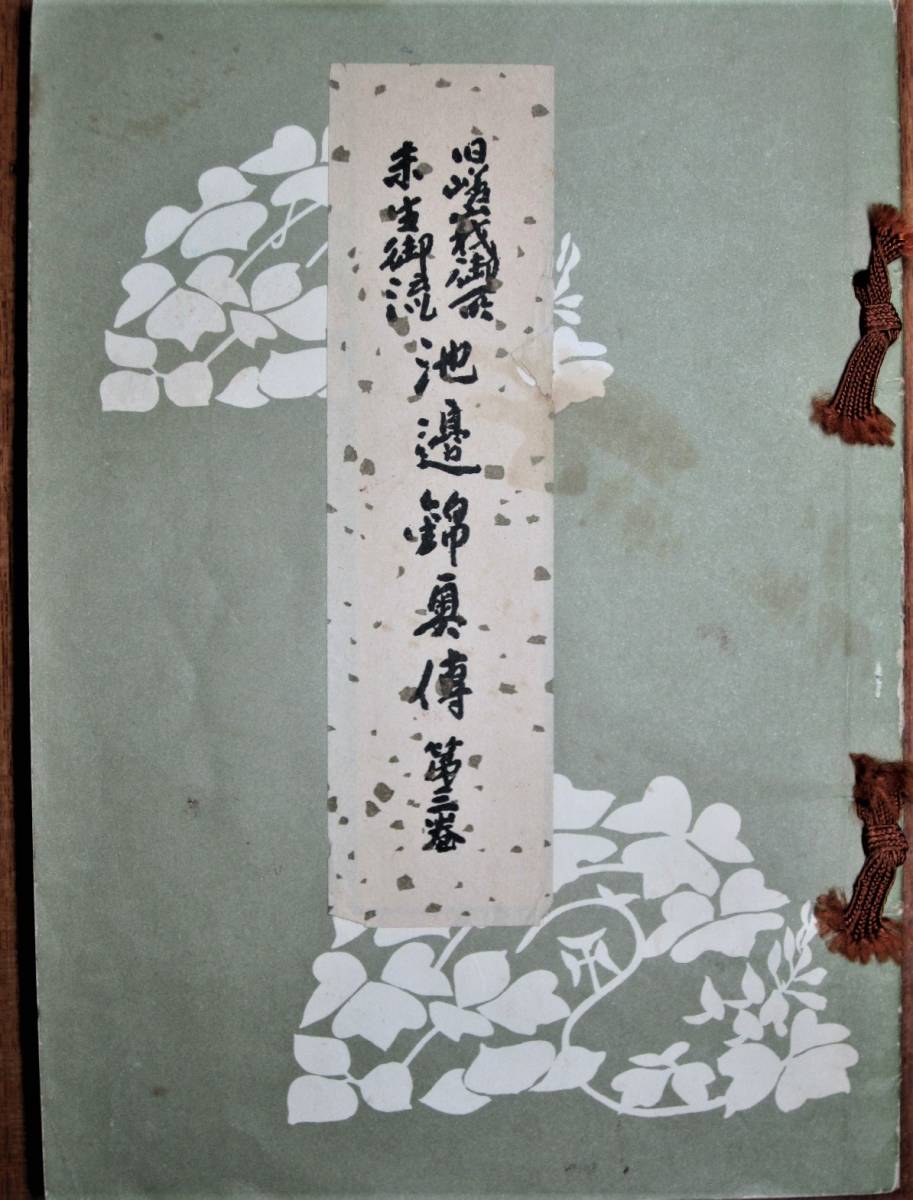 旧嵯峨御所
未生御流
池邊錦奥傳 第三巻